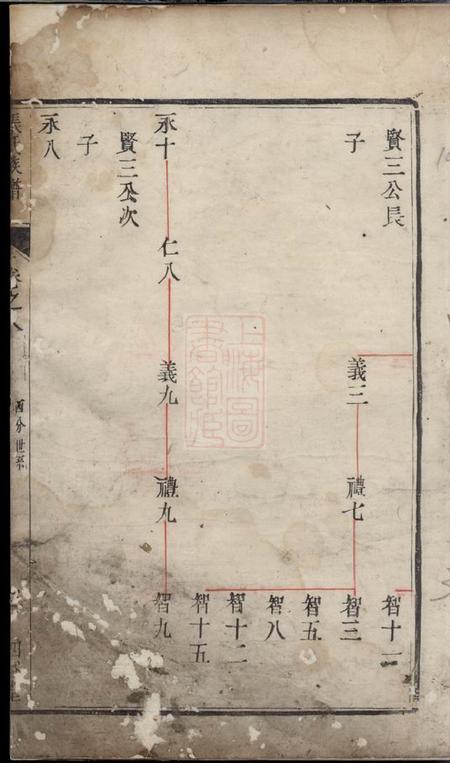 賢三公長
子
義三
禮七
智十一
智三
智五
智八
智十二
智十五
永十
仁八
義九
禮九
智九
賢三公次
子
永八
張氏族譜
卷之八
酉分世系
上海圖
書館藏